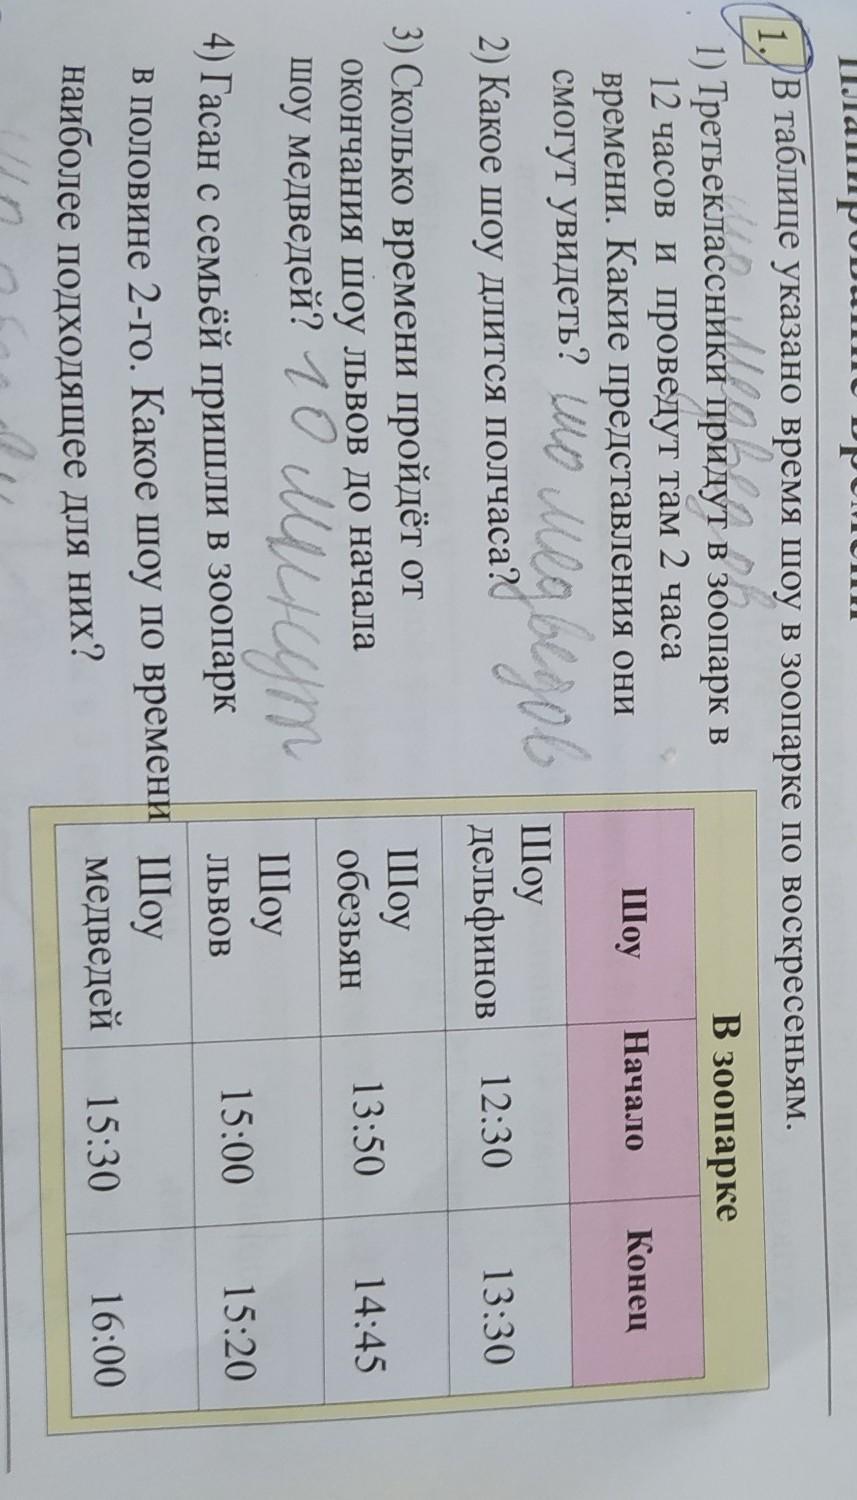 1. В таблице указано время шоу в зоопарке по воскресеньям.
1) Третьеклассники придут в зоопарк в
12 часов и проведут там 2 часа
времени. Какие представления они
смогут увидеть?
2) Какое шоу длится полчаса?
шо медведов
3) Сколько времени пройдёт от
окончания шоу львов до начала
шоу медведей? 10 минут
4) Гасан с семьёй пришли в зоопарк
в половине 2-го. Какое шоу по времени
наиболее подходящее для них?
В зоопарке
Шоу Начало Конец
Шоу дельфинов 12:30 13:30
Шоу обезьян 13:50 14:45
Шоу львов 15:00 15:20
Шоу медведей 15:30 16:00